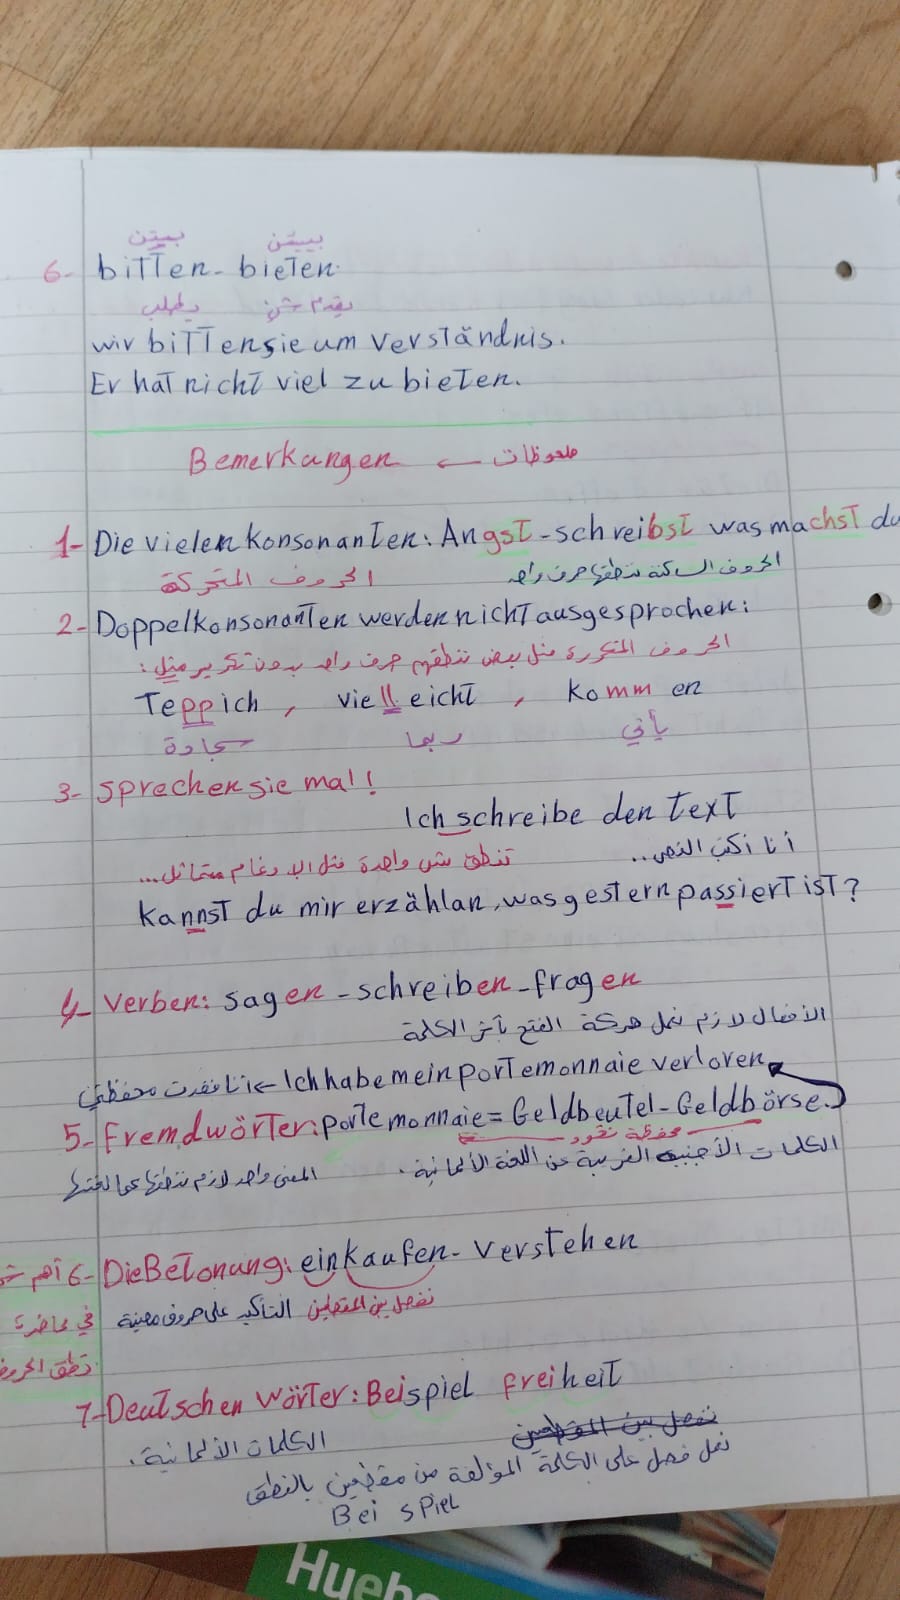 بيتن بييتن
6- bitten - bieten.
يطلب يقدم شئ
wir bitten sie um verständnis.
Er hat nicht viel zu bieten.
Bemerkangen ← ملحوظات
1- Die vielen konsonanten: Angst - schreibst was machst du
الحروف المتحركة الحروف الساكنة ننطقها حرف واحد
2- Doppelkonsonanten werden nicht ausgesprochen:
الحروف المتكررة مثل بعض ننطقهم حرف واحد بدون تكرير مثل:
Teppich , vielleicht , kommen
سجادة ربما يأتي
3- sprechen sie mal!
Ich schreibe den Text
أنا أكتب النص..
تنطق ش واحدة مثل الإدغام متماثل...
kannst du mir erzählan, was gestern passiert ist?
4- Verben: sagen - schreiben - fragen
الأفعال لازم نعمل حركة الفتح بآخر الكلمة
أنا فقدت محفظتي ← Ich habe mein portemonnaie verloren
5- Fremdwörter: portemonnaie = Geldbeutel - Geldbörse.
محفظة نقود
الكلمات الأجنبيه الغريبة عن اللغة الألمانية.
المعنى واحد لازم ننطقها
أهم 6- Die Betonung: einkaufen - verstehen
في محاضرة التأكيد على حروف معينة نفصل بين المقطعين
نطق الحروف
7- Deutschen Wörter: Beispiel freiheit
الكلمات الألمانية. نفصل بين المقطعين
نعمل فصل على الكلمة المؤلفة من مقطعين بالنطق
Bei spiel
Huebe